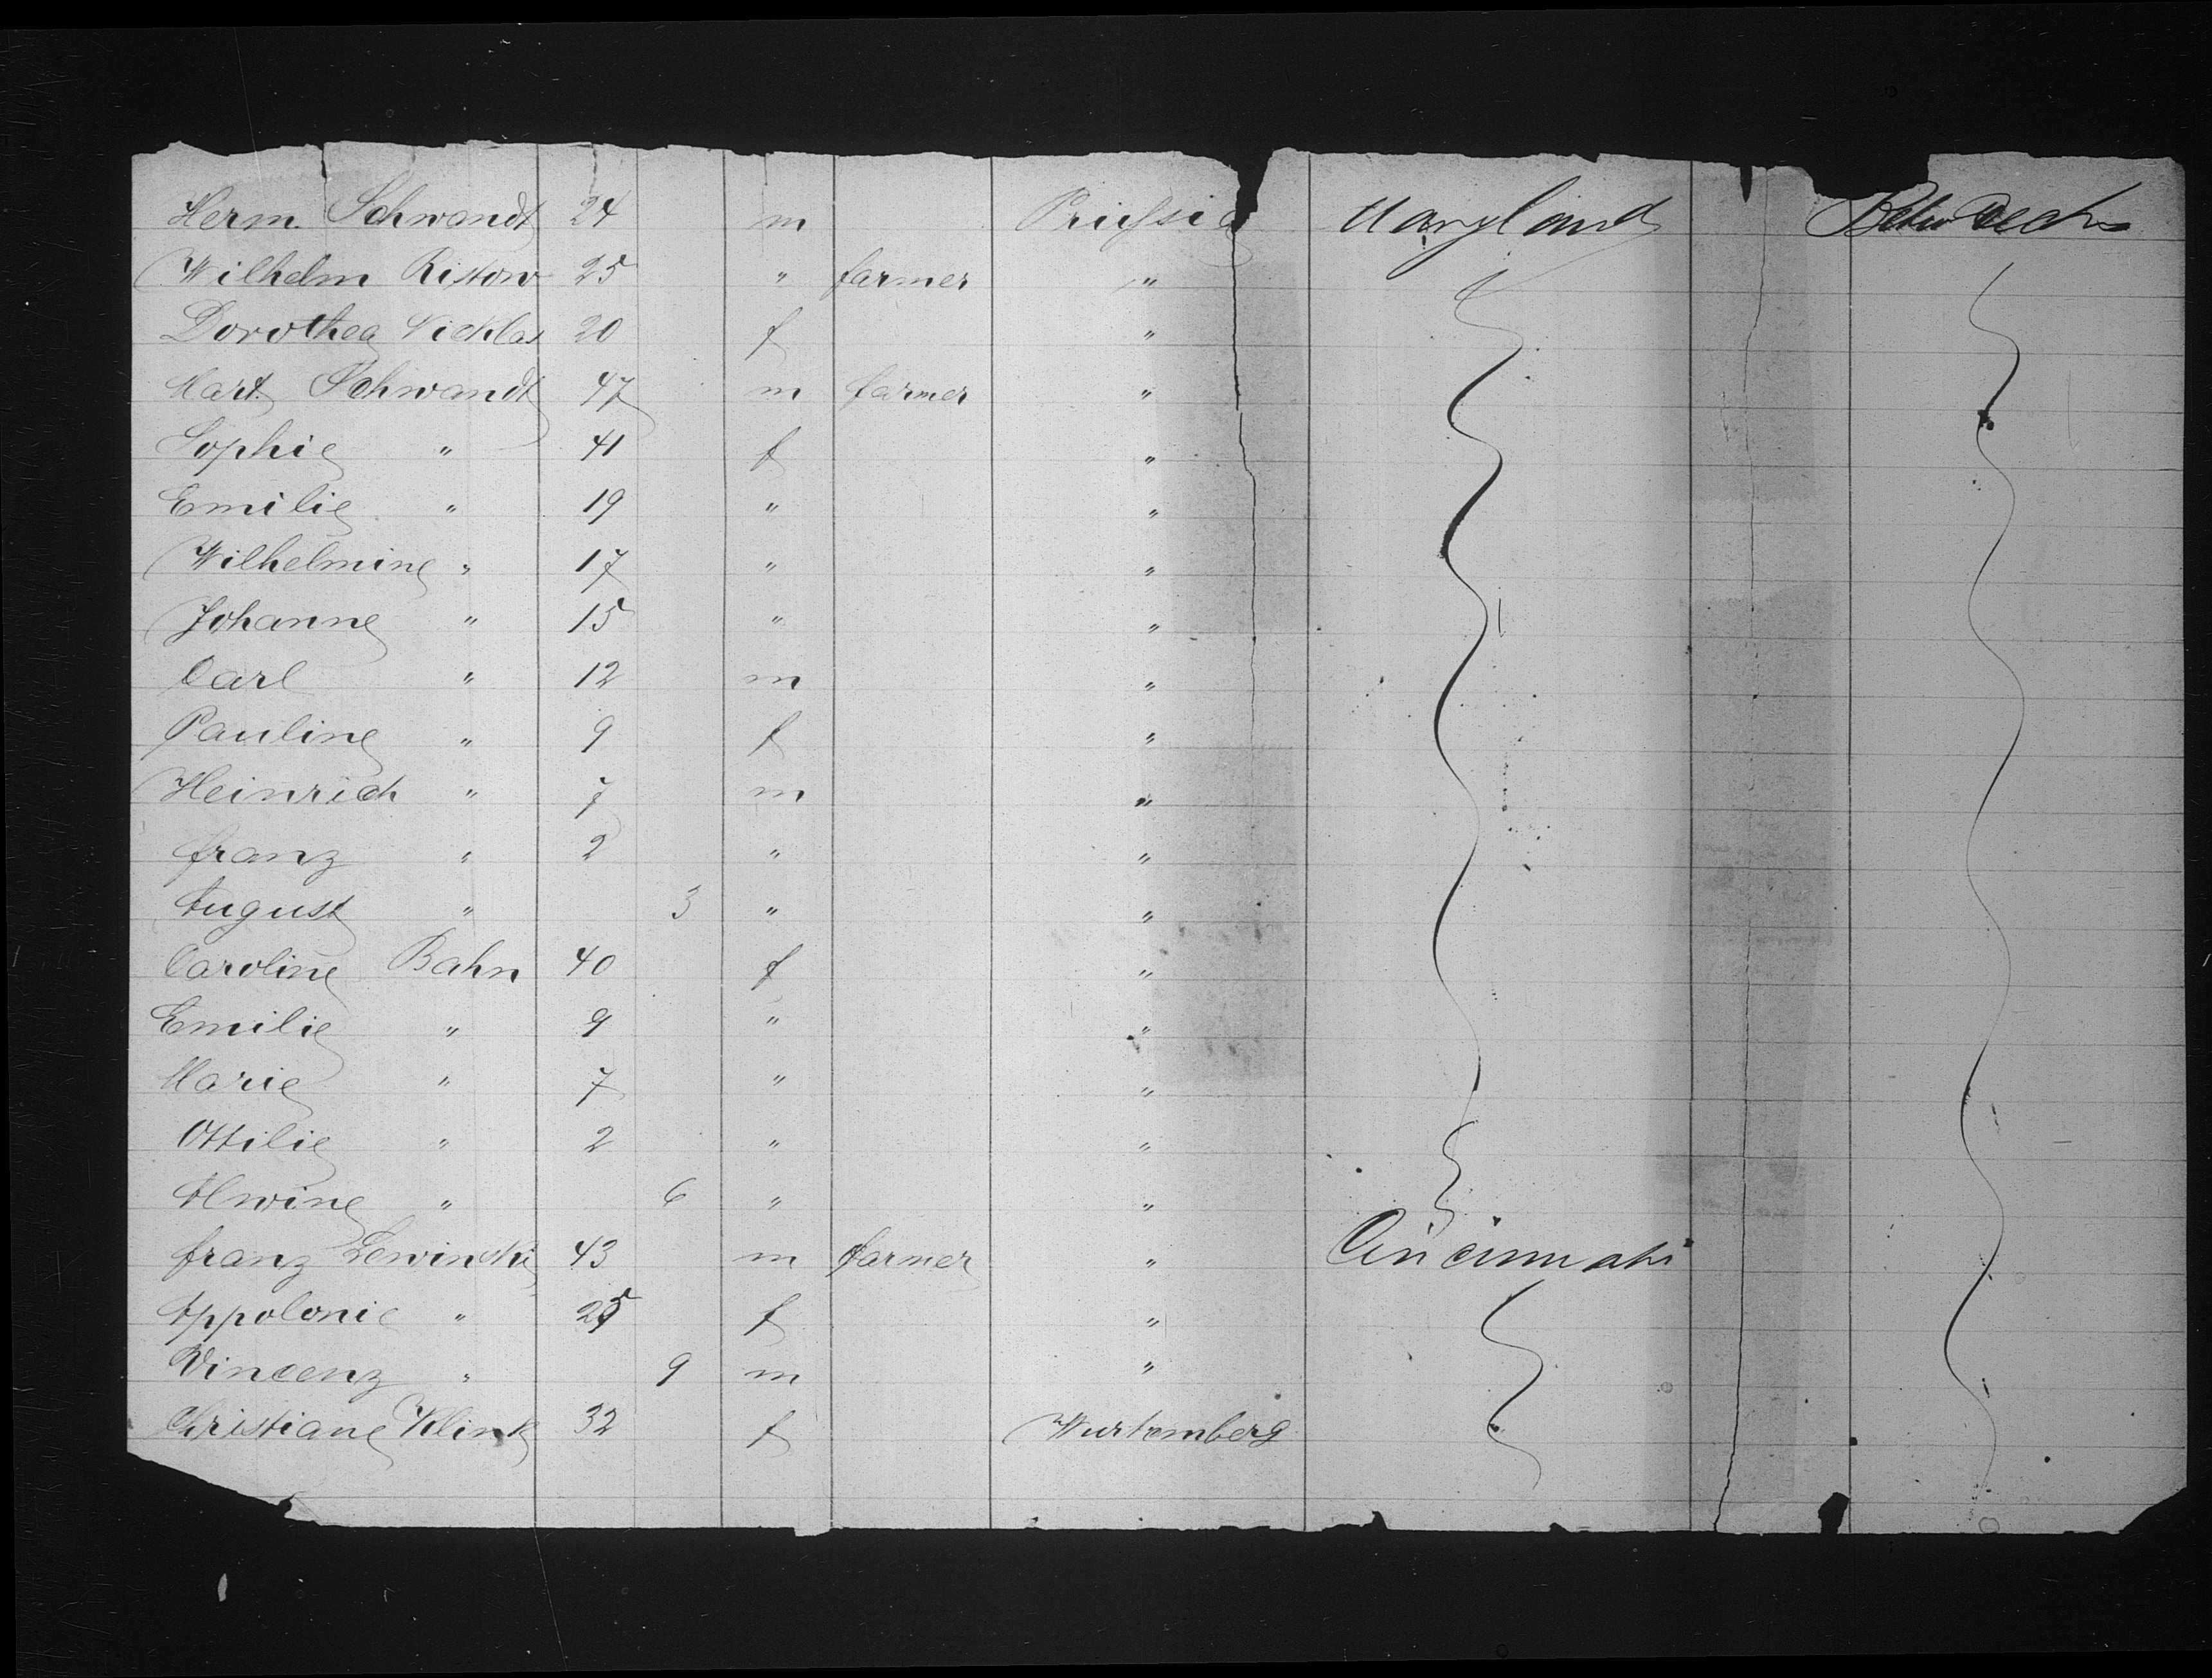 Herm. Schwandt 24 m Prussia Maryland Betw Decks
Wilhelm Ristow 25 " farmer "
Dorothea Nicklas 20 f "
Mart. Schwandt 47 m farmer "
Sophie " 41 f "
Emilie " 19 " "
Wilhelmine " 17 " "
Johanne " 15 " "
Carl " 12 m "
Pauline " 9 f "
Heinrich " 7 m "
Franz " 2 " "
August " 3 " "
Caroline Bahn 40 f "
Emilie " 9 " "
Marie " 7 " "
Ottilie " 2 " "
Alwine " 6 " "
Franz Lewinski 43 m farmer " Cincinnati
Appolonie " 25 f "
Vincenz " 9 m "
Christiane Klink 32 f Wurtemberg